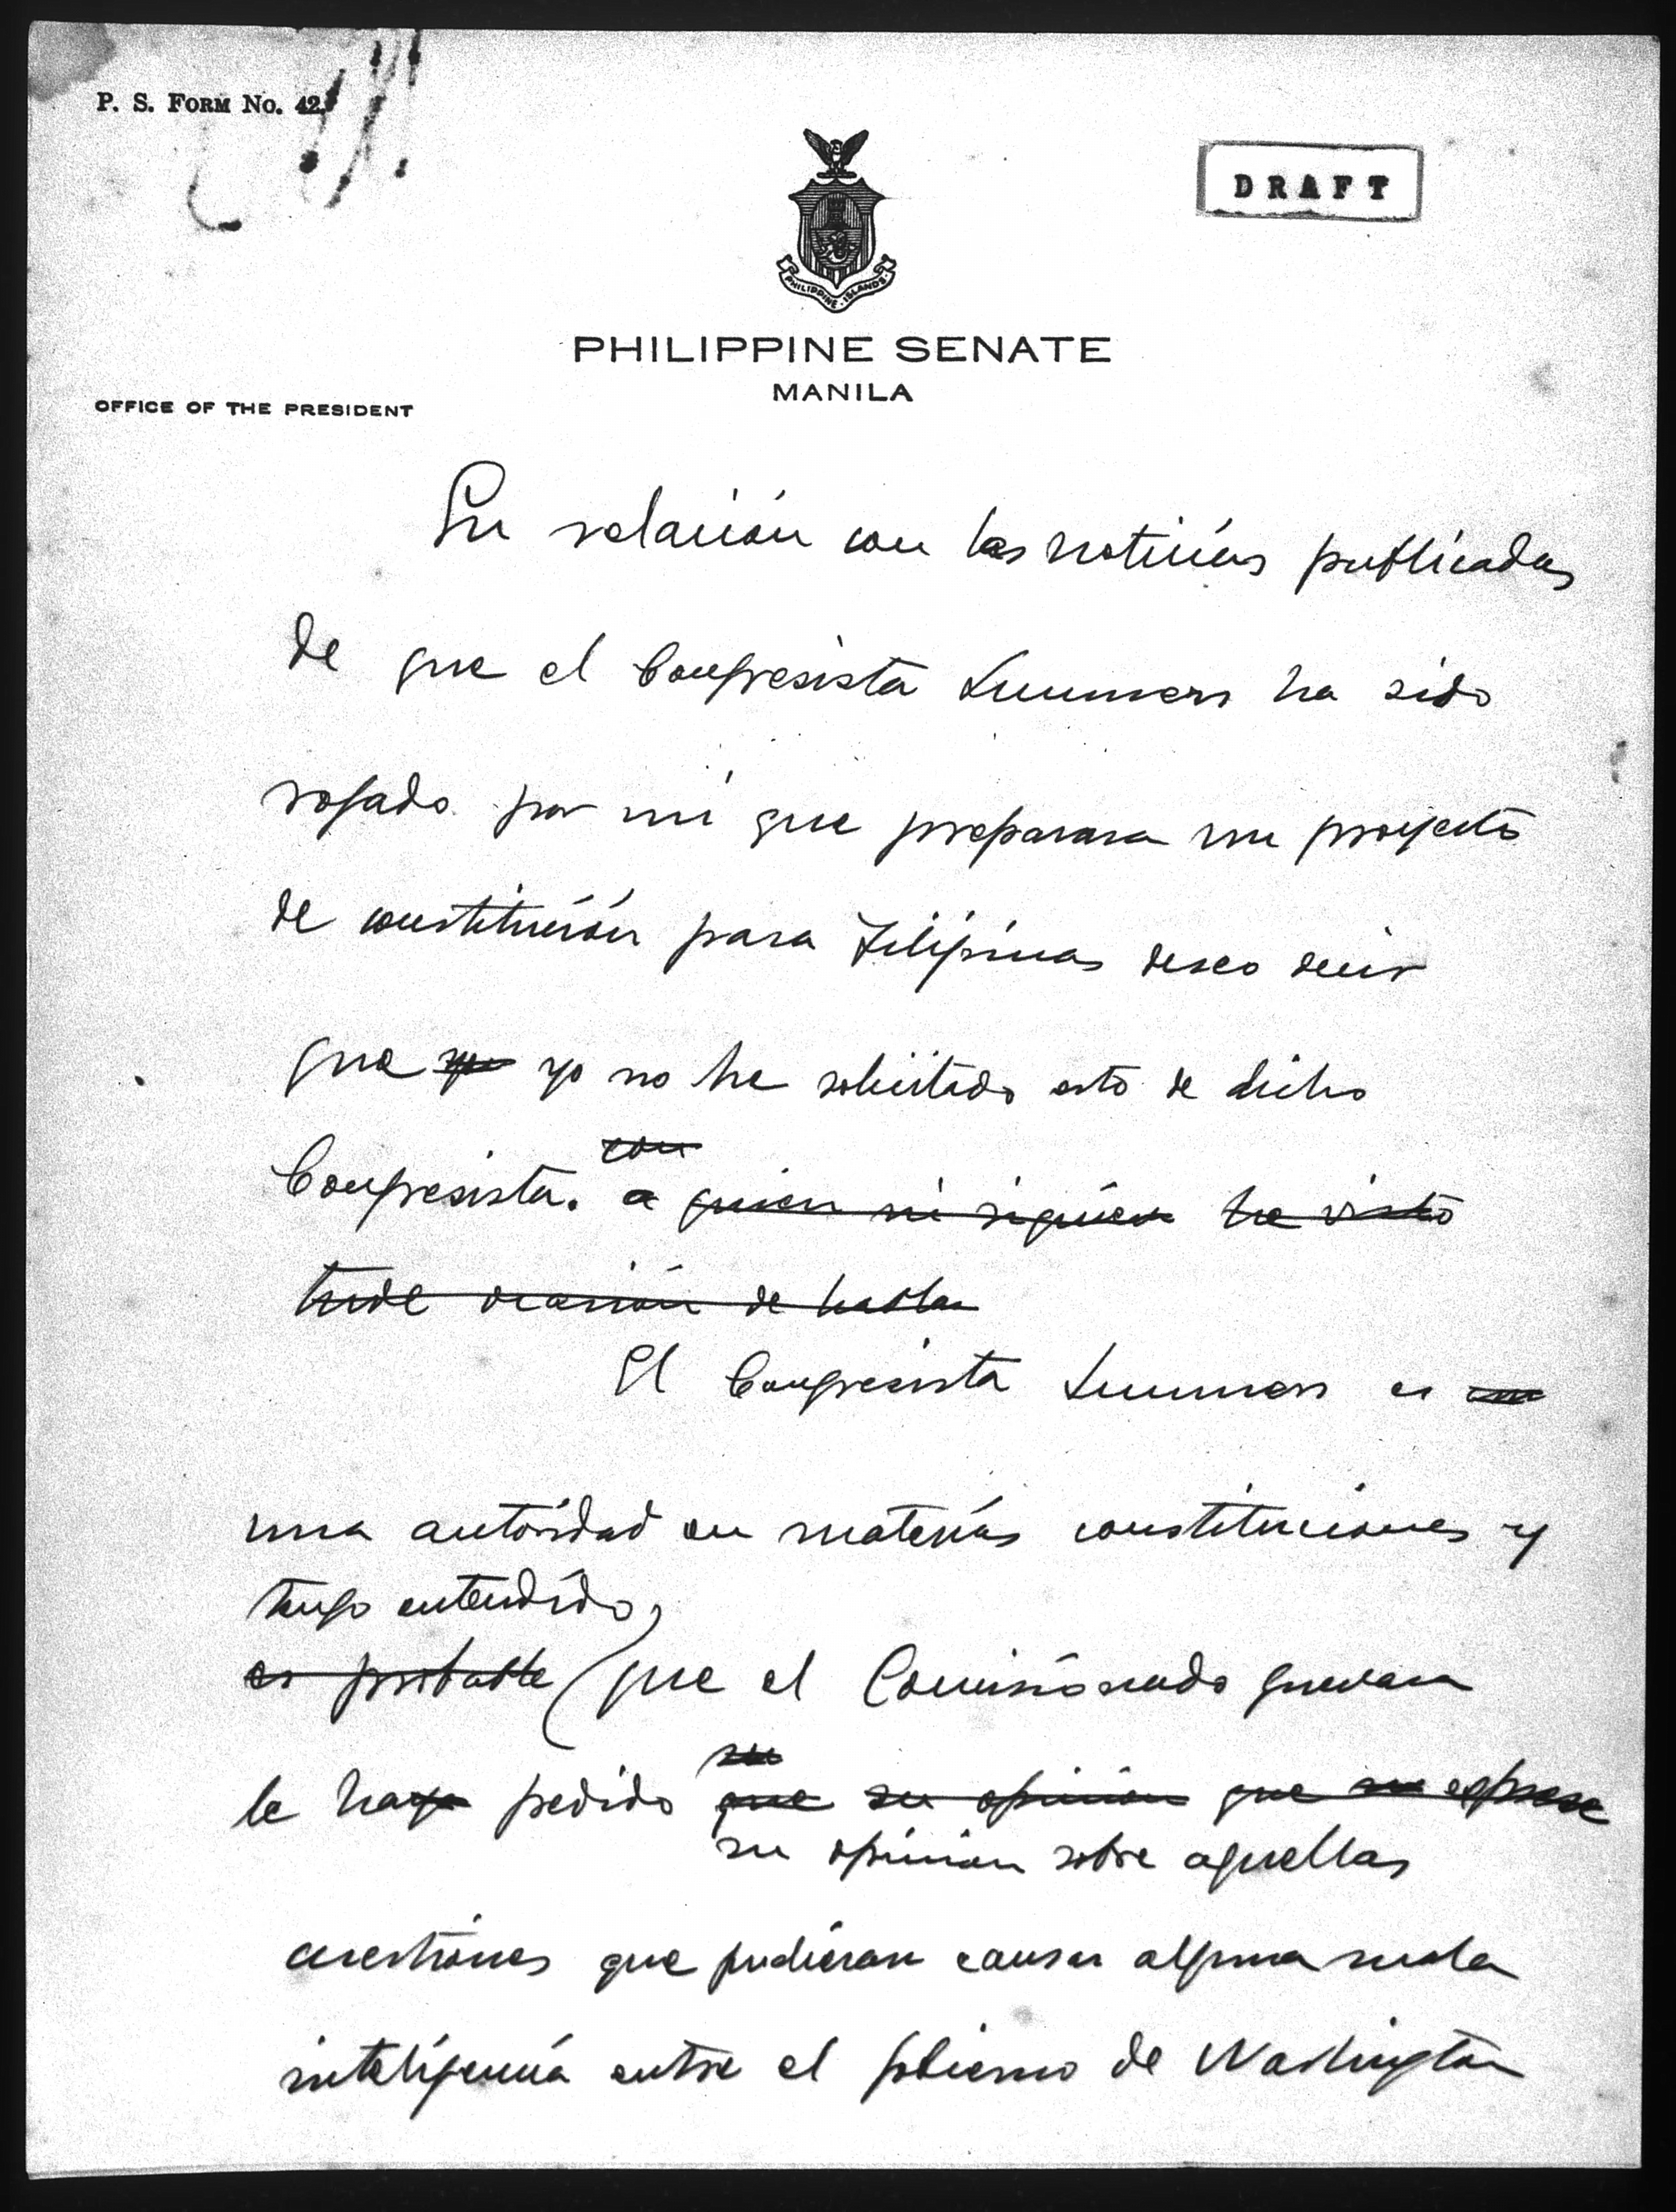 P. S. FORM No. 42
DRAFT
PHILIPPINE ISLANDS
PHILIPPINE SENATE
MANILA
OFFICE OF THE PRESIDENT
En relación con las noticias publicadas
de que el Congresista Summers ha sido
rogado por mí que preparara un proyecto
de constitución para Filipinas deseo decir
que yo yo no he solicitado esto de dicho
con
Congresista. a quien ni siquiera he visto
tuve ocasión de hablar
El Congresista Summers es un
una autoridad en materias constituciones y
tengo entendido,
es probable que el Comisionado Guevara
su
le haya pedido que su opinión que su exprese
su opinión sobre aquellas
cuestiones que pudieran causar alguna mala
inteligencia entre el gobierno de Washington